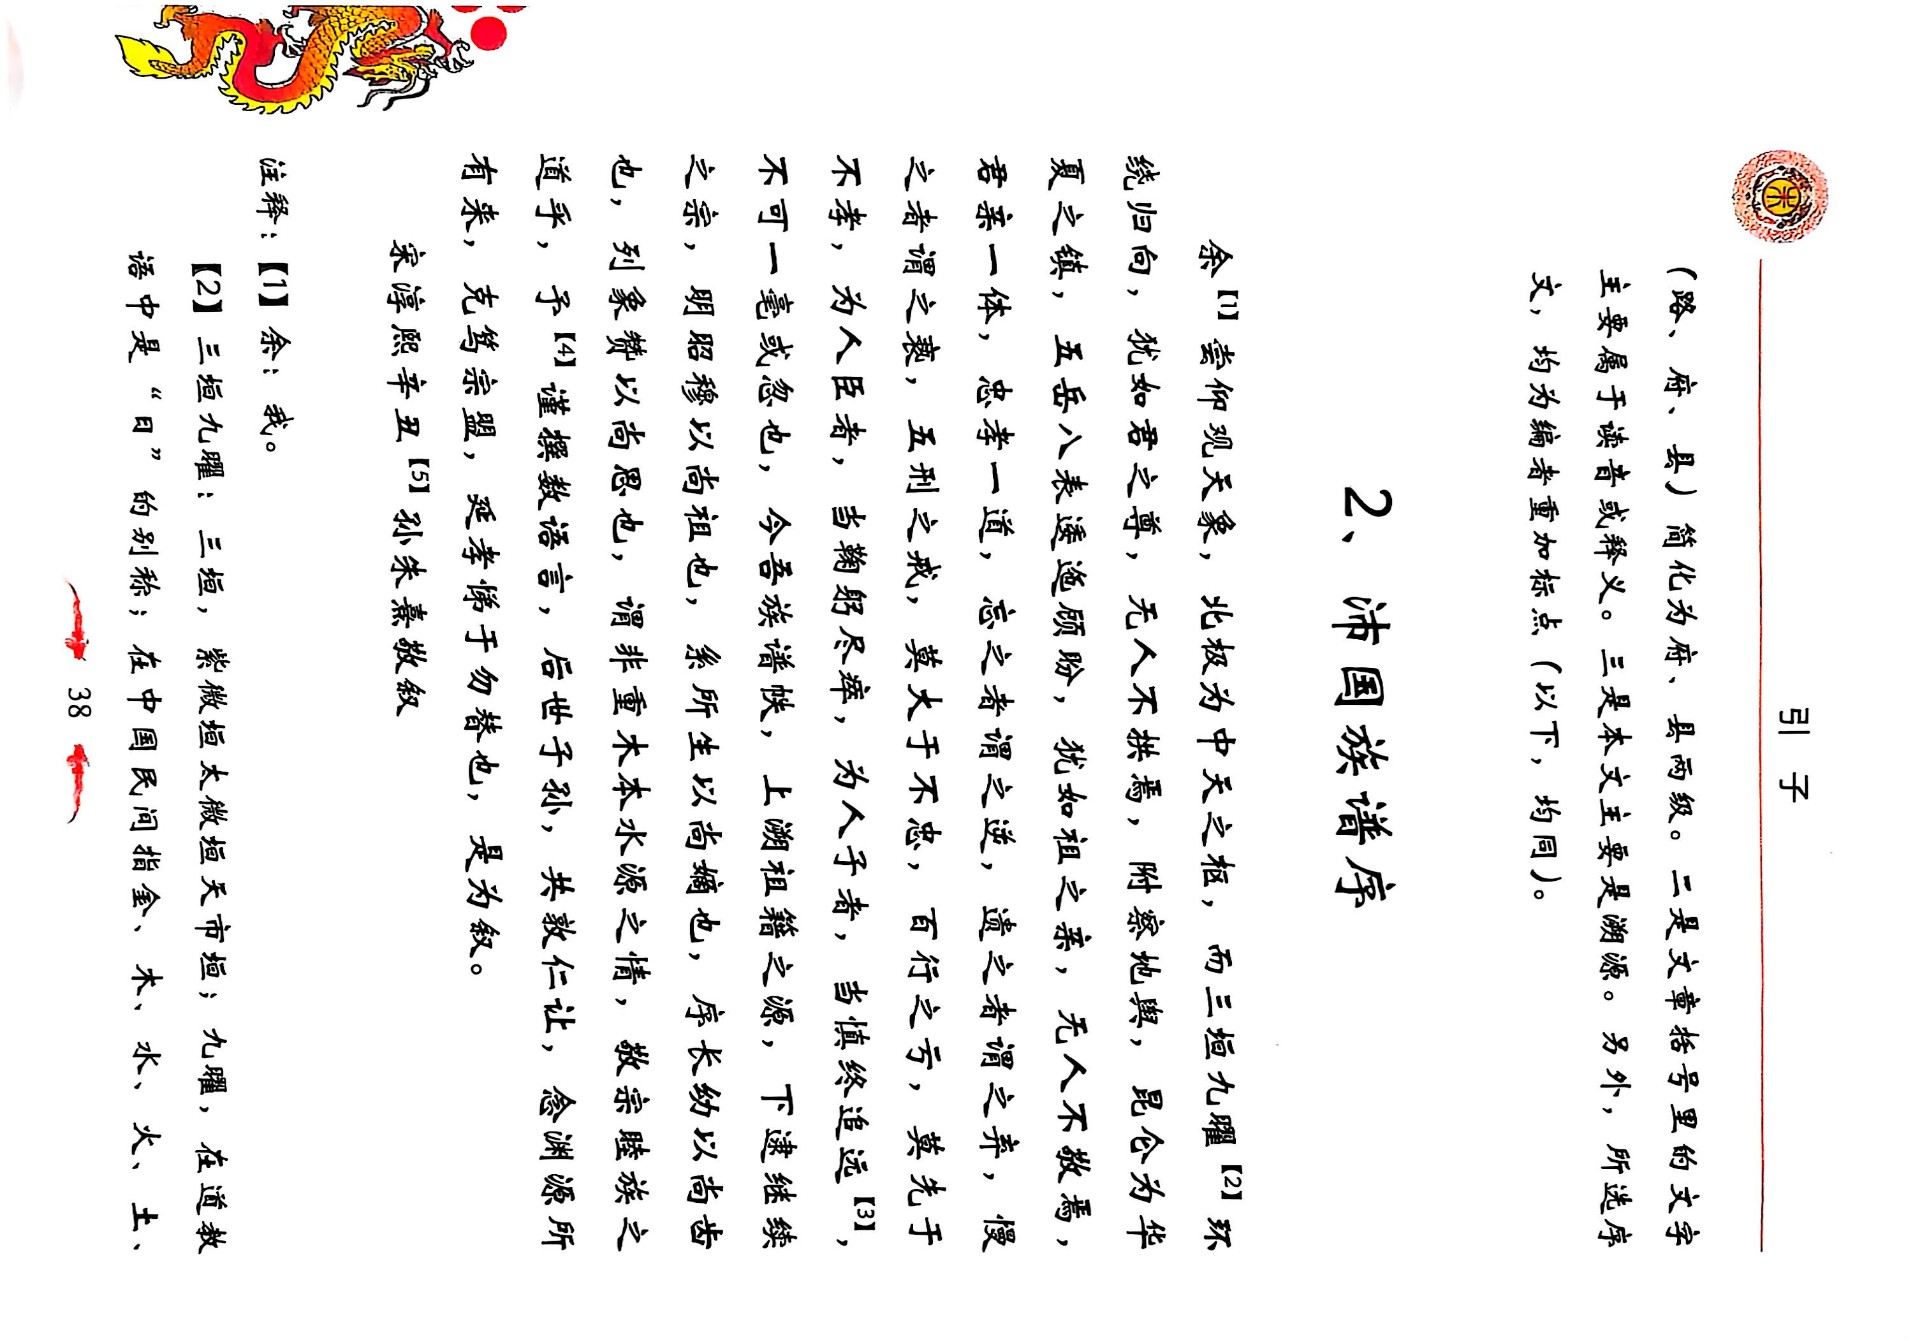 引 子
（路、府、县）简化为府、县两级。二是文章括号里的文字
主要属于读音或释义。三是本文主要是溯源。另外，所选序
文，均为编者重加标点（以下，均同）。
2、沛国族谱序
余【1】尝仰观天象，北极为中天之枢，而三垣九曜【2】环
绕归向，犹如君之尊，无人不拱焉，附察地舆，昆仑为华
夏之镇，五岳八表逶迤顾盼，犹如祖之亲，无人不敬焉，
君亲一体，忠孝一道，忘之者谓之逆，遗之者谓之弃，慢
之者谓之亵，五刑之戒，莫大于不忠，百行之亏，莫先于
不孝，为人臣者，当鞠躬尽瘁，为人子者，当慎终追远【3】，
不可一毫或忽也，今吾族谱帙，上溯祖籍之源，下逮继续
之宗，明昭穆以尚祖也，系所生以尚嫡也，序长幼以尚齿
也，列象赞以尚思也，谓非重木本水源之情，敬宗睦族之
道乎，予【4】谨撰数语言，后世子孙，共敦仁让，念渊源所
有来，克笃宗盟，延孝悌于勿替也，是为叙。
宋淳熙辛丑【5】孙朱熹敬叙
注释：【1】余：我。
【2】三垣九曜：三垣，紫微垣太微垣天市垣；九曜，在道教
语中是“日”的别称；在中国民间指金、木、水、火、土、
38